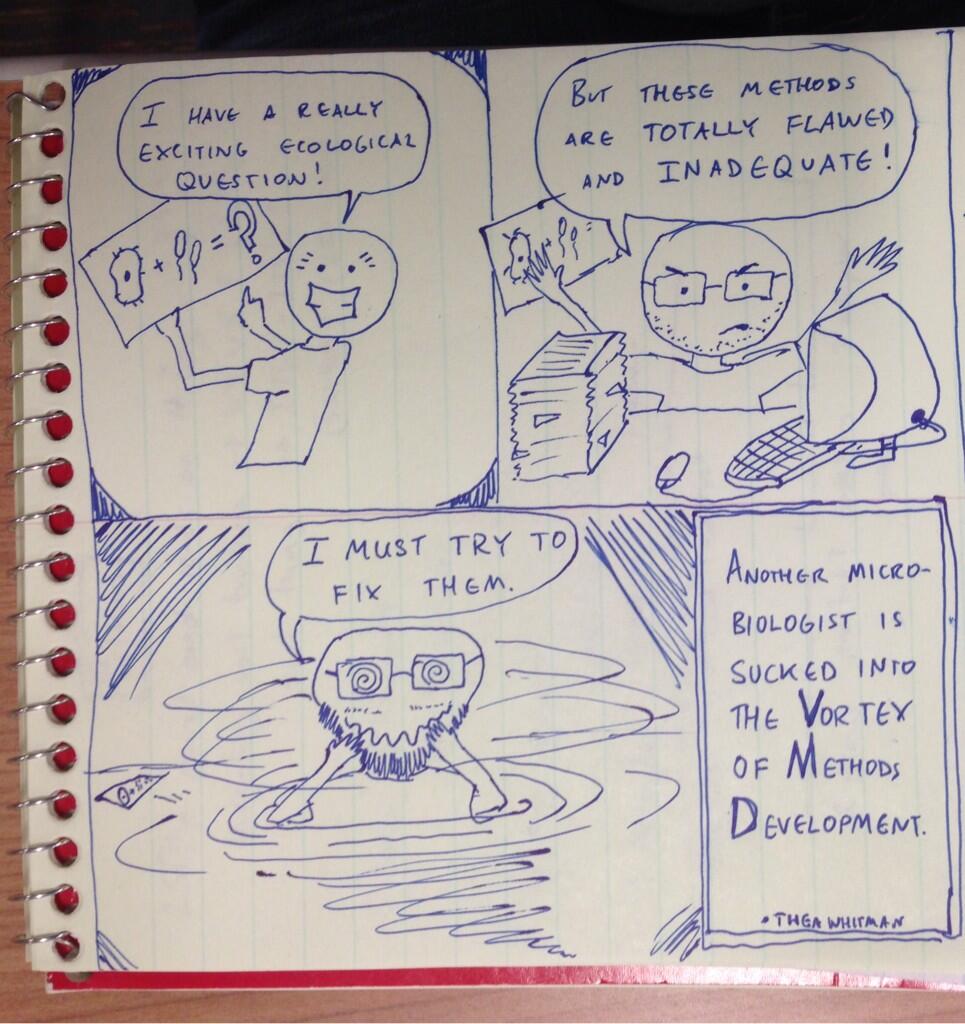 I HAVE A REALLY
EXCITING ECOLOGICAL
QUESTION!
+ = ?
BUT THESE METHODS
ARE TOTALLY FLAWED
AND INADEQUATE!
+ =
I MUST TRY TO
FIX THEM.
ANOTHER MICRO-
BIOLOGIST IS
SUCKED INTO
THE VORTEX
OF METHODS
DEVELOPMENT.
•THEA WHITMAN